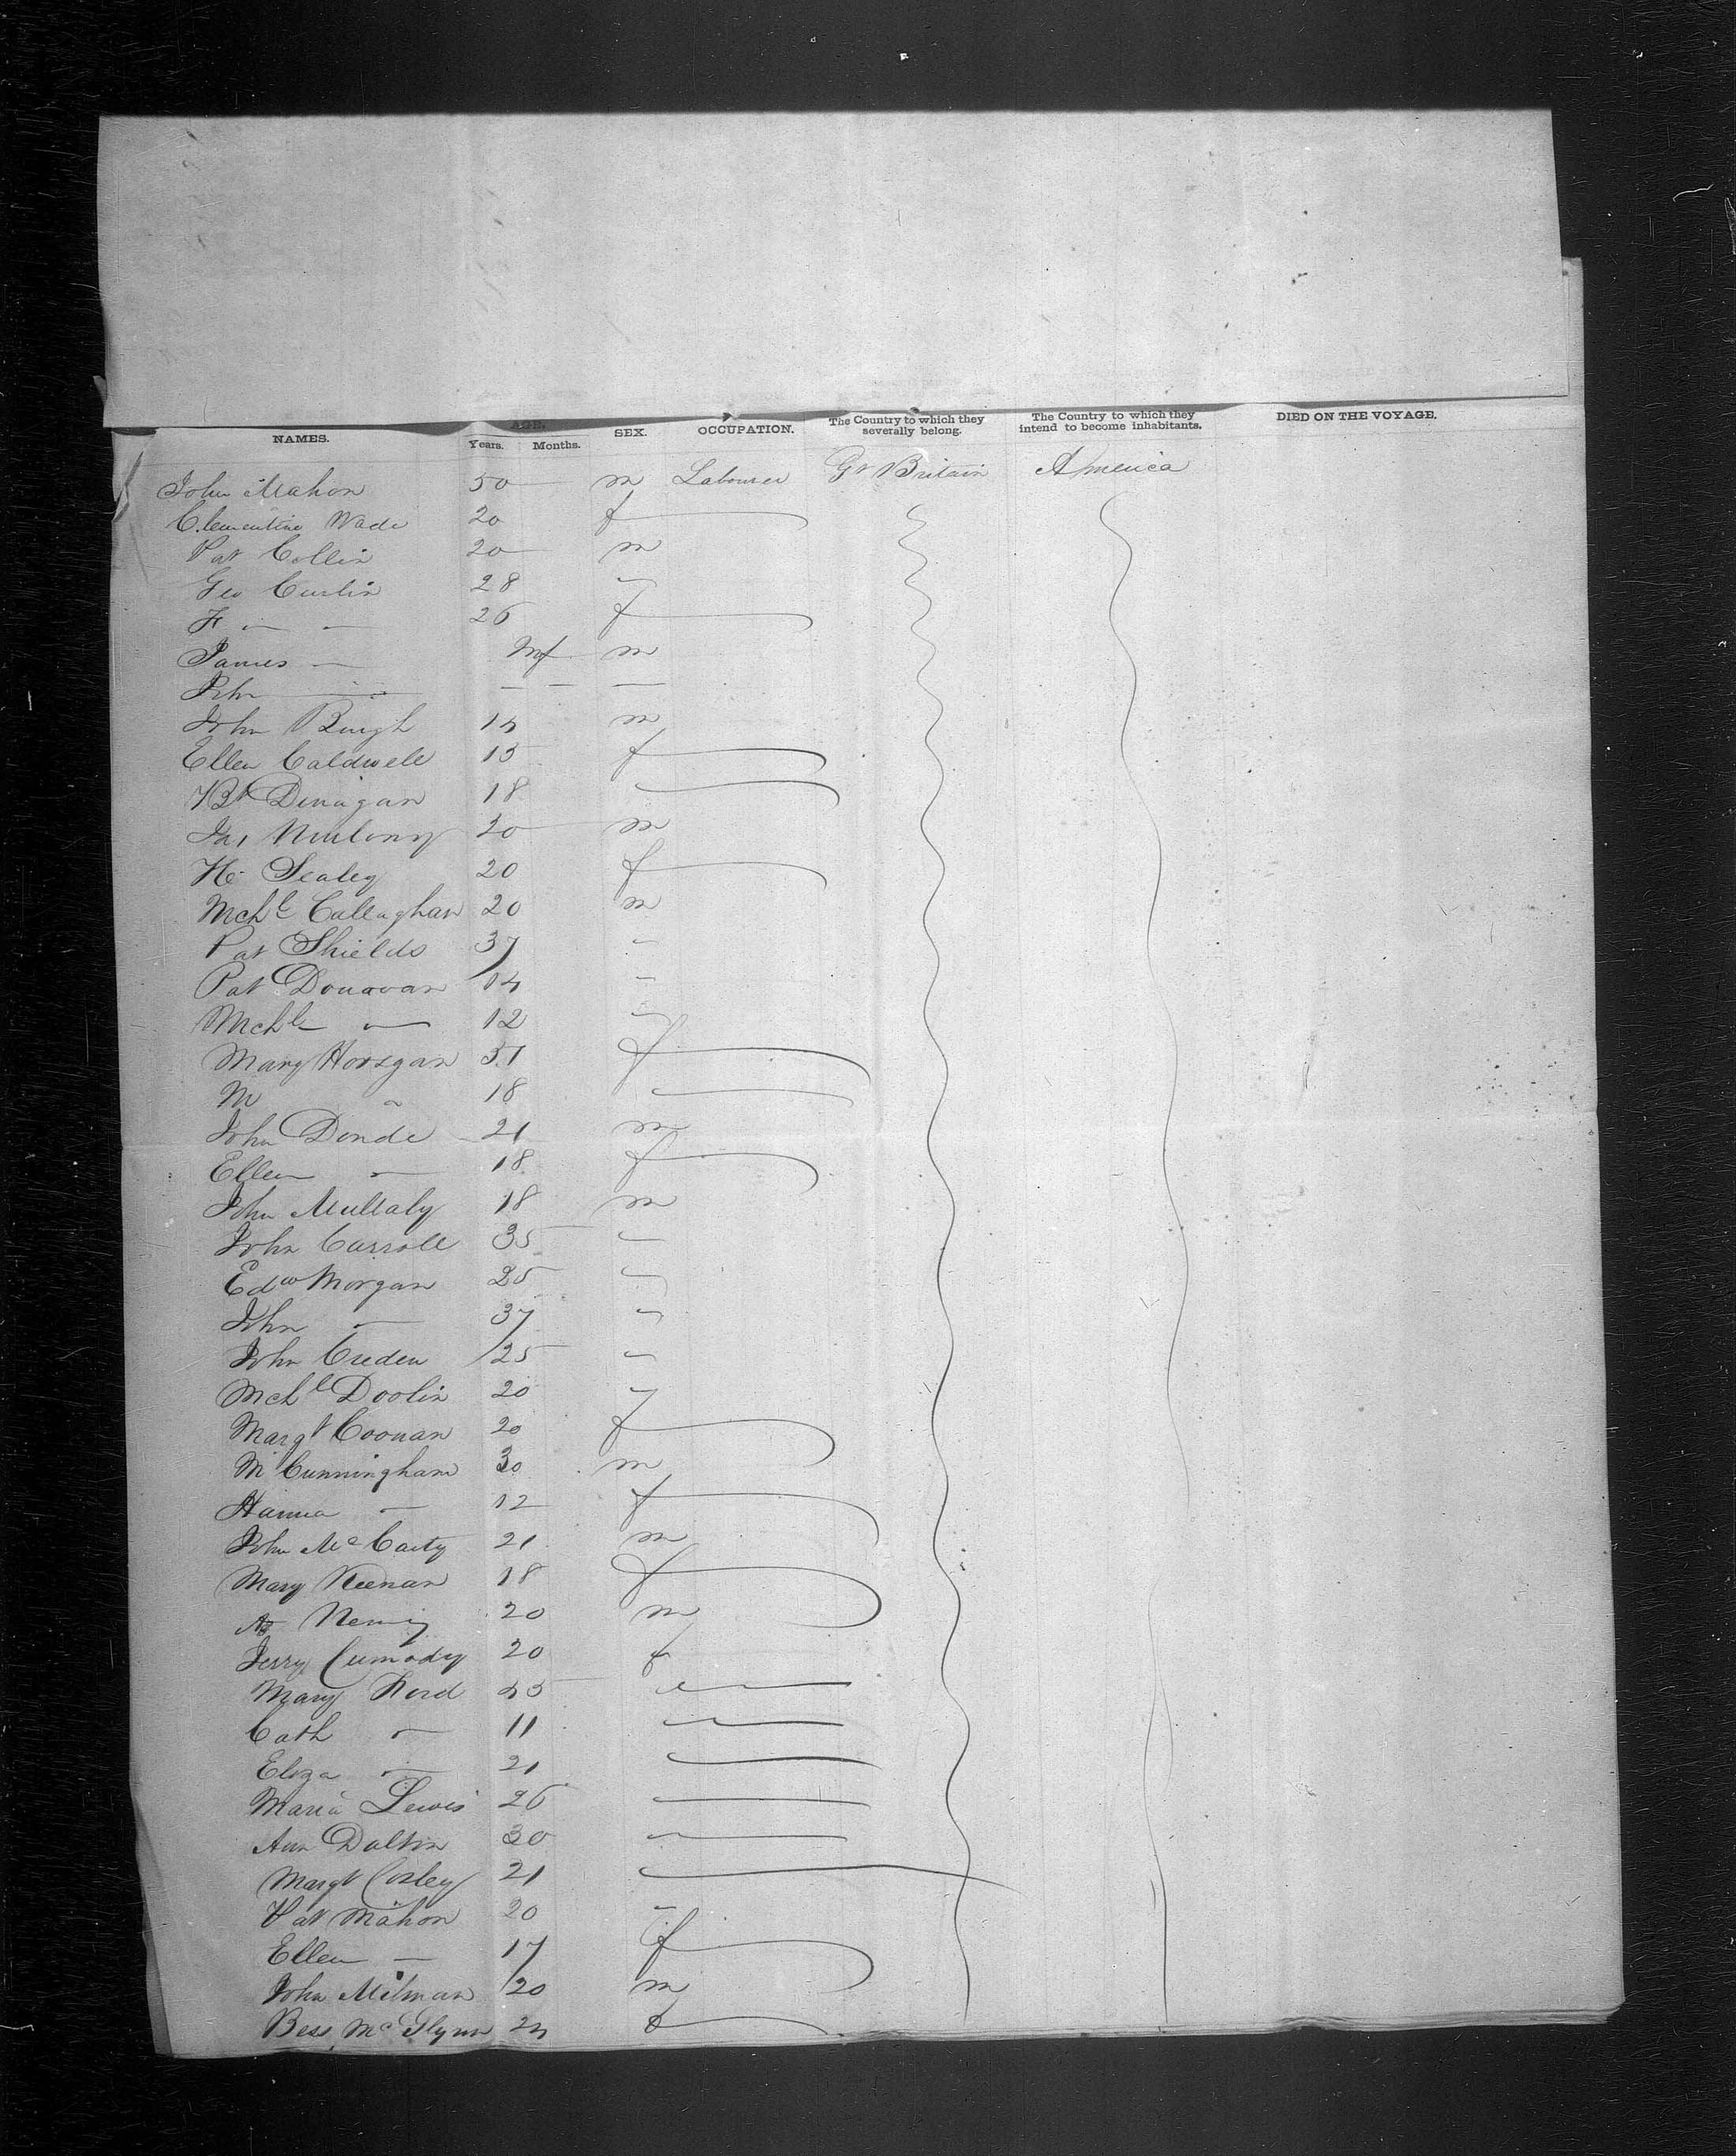 AGE.
NAMES. Years. Months. SEX. OCCUPATION. The Country to which they severally belong. The Country to which they intend to become inhabitants. DIED ON THE VOYAGE.
John Mahon 50 m Labourer Gt Britain America
Clementine Wade 20 f
Pat Collin 20 m
Geo Curlin 28
F — — 26 f
James — Inf m
John — — — —
John Bugh 14 m
Ellen Caldwell 15 f
Bt Dinagan 18
20 m
Sealey 20 f
Mchl Callaghan 20 m
Pat Shields 37 -
Pat Donovan 14 -
Mchl — 12
Mary Horsgan 51 f
M 18
John Donde 21 m
Ellen — 18 f
John Mullaly 18 m
John Carroll 35
Edw Morgan 25
John — 37
John Creden 25
Mchl Doolin 20
Margt Coonan 20 f
M Cunningham 30 m
Hanna — 12 f
John McCarty 21 m
Mary Keenan 18 f
20 m
Jerry Cumody 20 f
Mary Ford 45
Cath — 11
Eliza — 21
Maria Lewis 26
Ann Dalton 30
Margt Corley 21
Pat Mahon 20 -
Ellen — 17 f
John Milman 20 m
Bess McGlynn 24 f